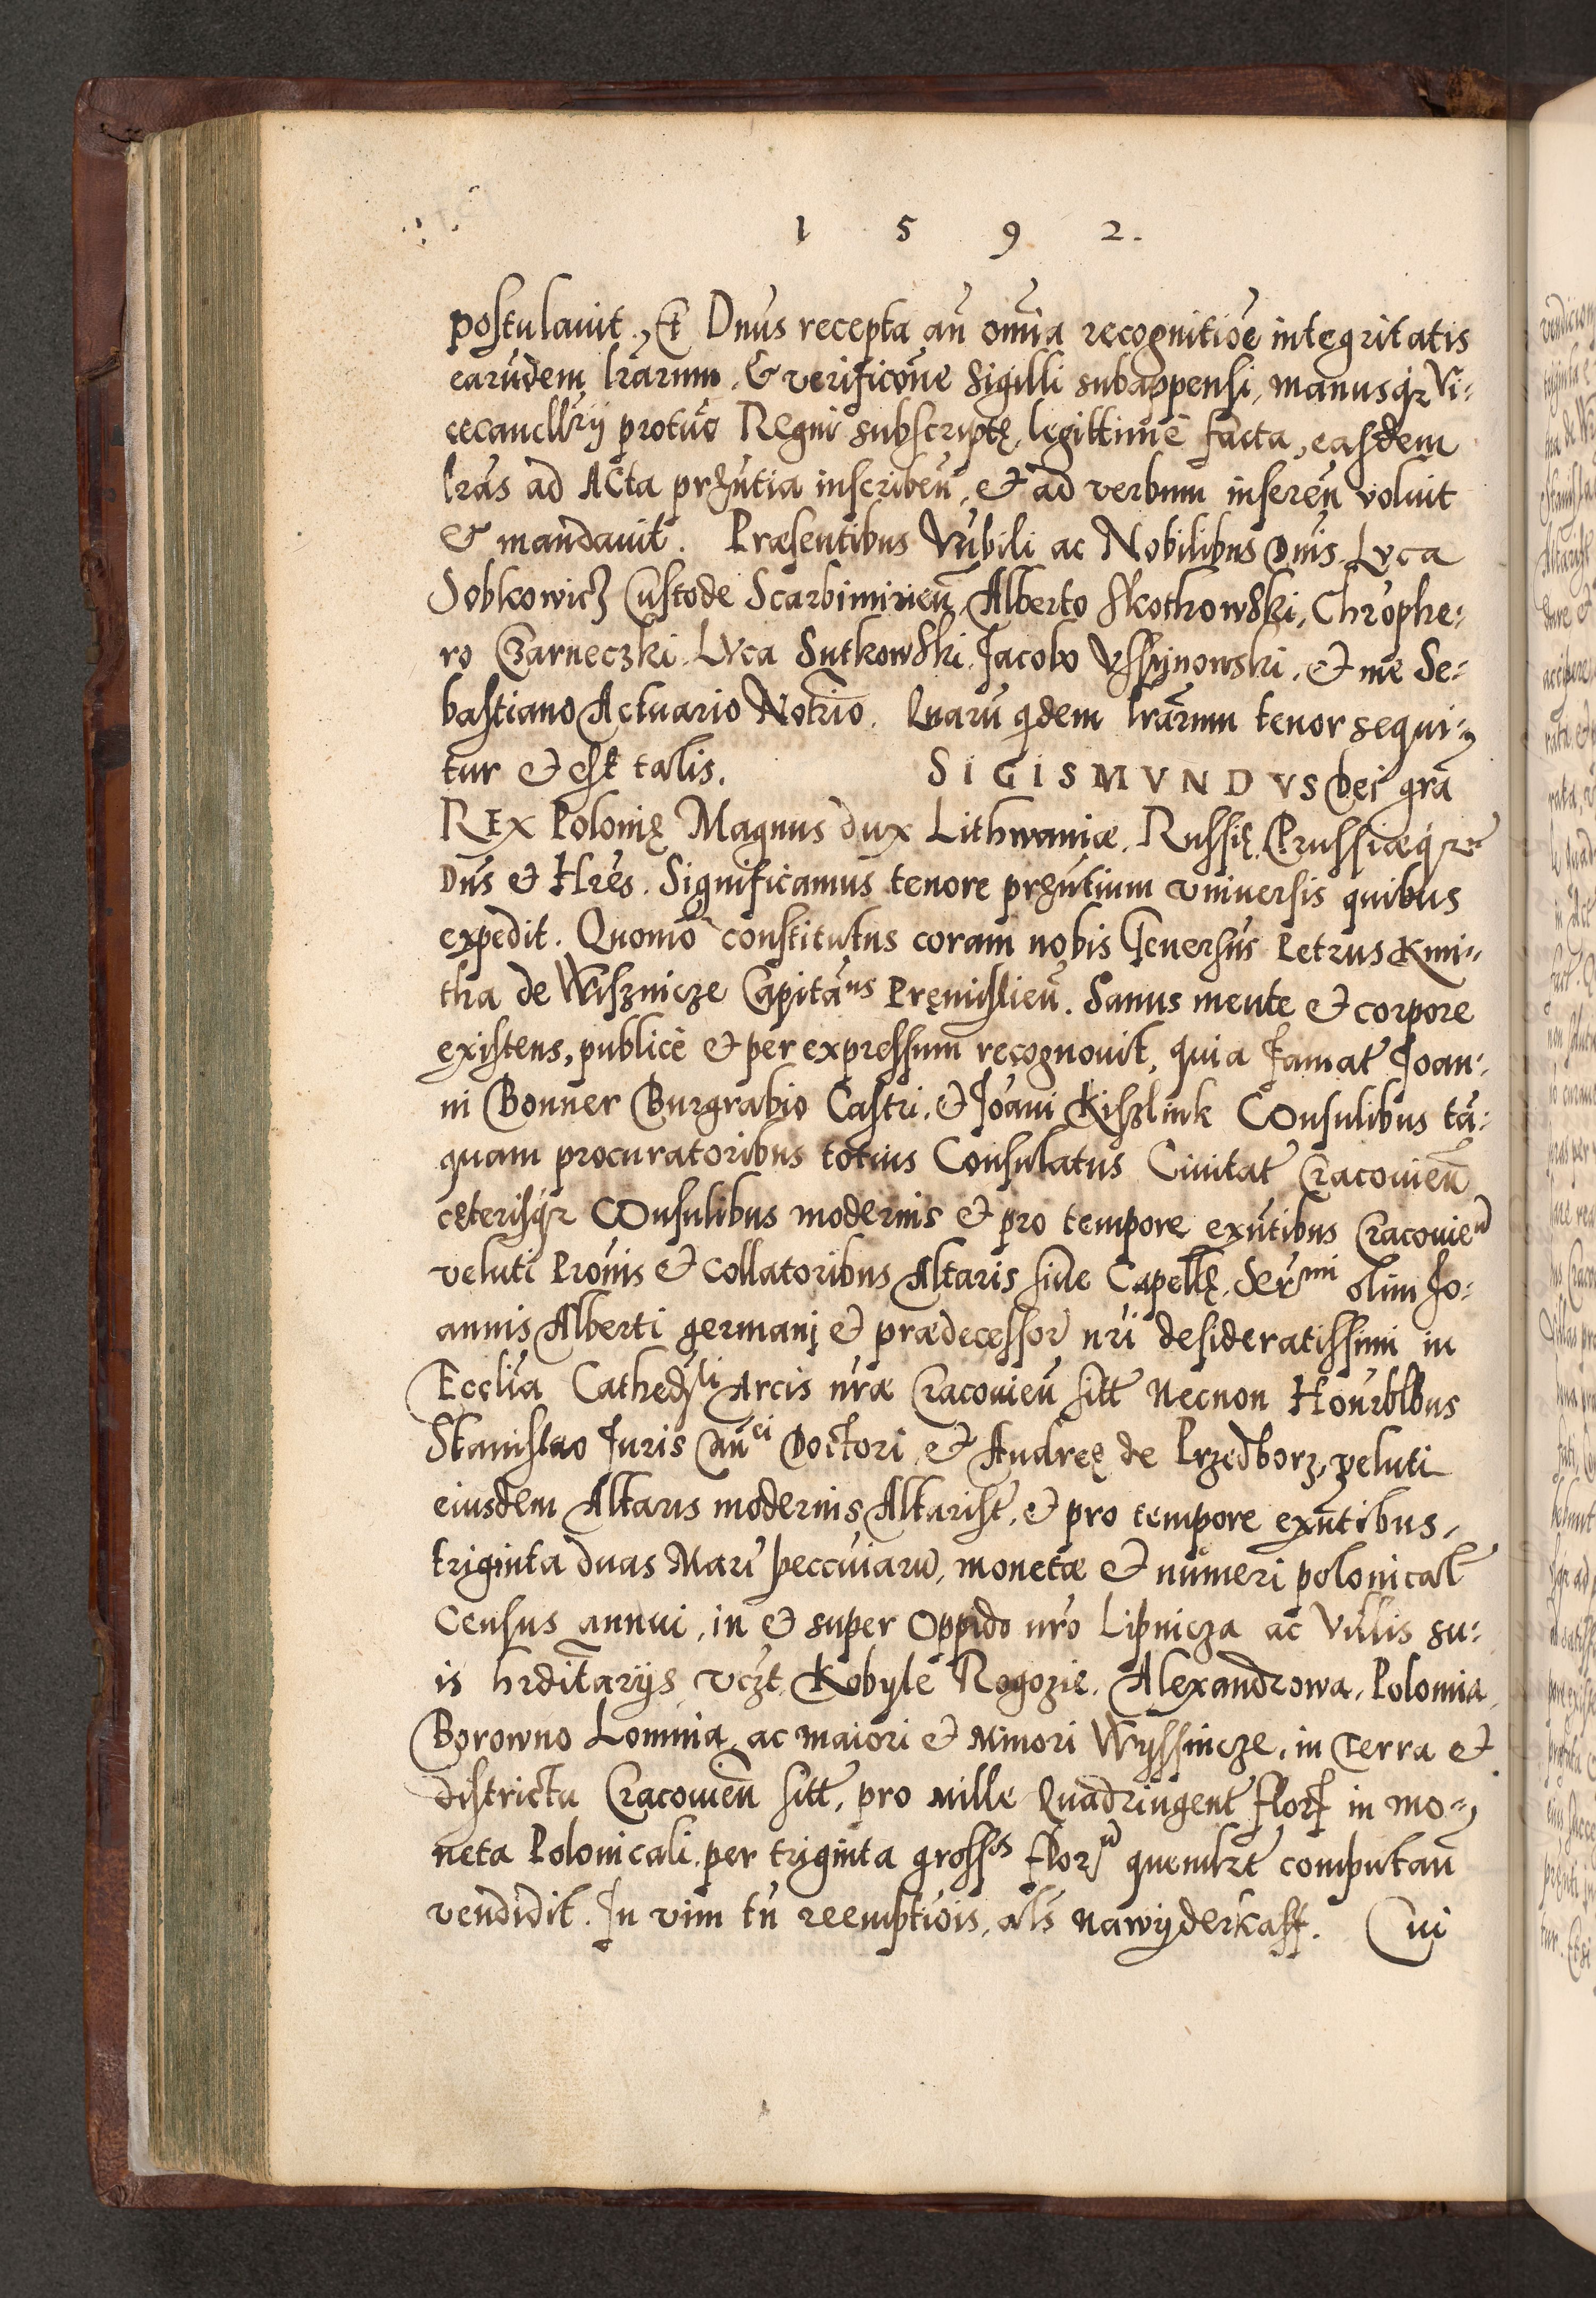 1 5 9 2.
postulauit, Et Dnus recepta añ omnia recognitiõe integritatis
earundem lrarum, & verificõne Sigilli subappensi, manusqz Vi-
cecancllrij protũc Regni subscriptę, legittimè facta, easdem
lras ad Acta prñtia inscribeñ, et ad verbum inserẽn voluit
& mandauit. Præsentibus Vñbili ac Nobilibus Dnis Lvca
Sobkowicz Custode Scarbimirieñ, Alberto Skotnowski, Chrophe-
ro Czarneczki. Lvca Sutkowski. Jacobo Vssynowski, et me Se-
bastiano Actuario Notrio. Quarũ qdem lrarum tenor sequi-
tur et est talis. SIGISMVNDVS Dei grã
REx Polonię Magnus dux Lithwaniæ, Russię, Prussiæqz
Dns et Hres. Significamus tenore prñtium vniuersis quibus
expedit. Quomõ constitutus coram nobis Generosus Petrus Kmi-
tha de Wisznicze Capitãus Pręmislieñ. Sanus mente et corpore
existens, publicè et per expressum recognouit, quia famat Joan-
ni Bonner Burgrabio Castri, et Joãni Kiszlink Consulibus tã-
quam procuratoribus totius Consulatus Ciuitat Cracouieñ
cęterisqz Consulibus modernis et pro tempore exñtibus Cracouieñ
veluti Prouis et Collatoribus Altaris siue Capellę Serm̃i olim Jo-
annis Alberti germani et prædecessor nri desideratissimi in
Ecclia Cathedrli Arcis nræ Cracouieñ sitt necnon Honrblbus
Stanislao Juris Cañci Doctori, et Andreę de Przedborz, veluti
eiusdem Altaris modernis Altarist, et pro tempore exñtibus,
triginta duas Marc peccuiarũ, monetæ et numeri polonical
Census annui, in et super Oppido nro Lipnicza ac Villis su-
is hrditarijs vczt Kobyle Rogozie, Alexandrowa, Polomia,
Borowno Lomna, ac maiori et Minori Wyssnicze, in terra et
districtu Cracouieñ sitt, pro Mille Quadringent flor in mo-
neta Polonicali, per triginta gross flor quemlzt computañ
vendidit. In vim tñ reemptiõis, als nawyderkaff. Cui